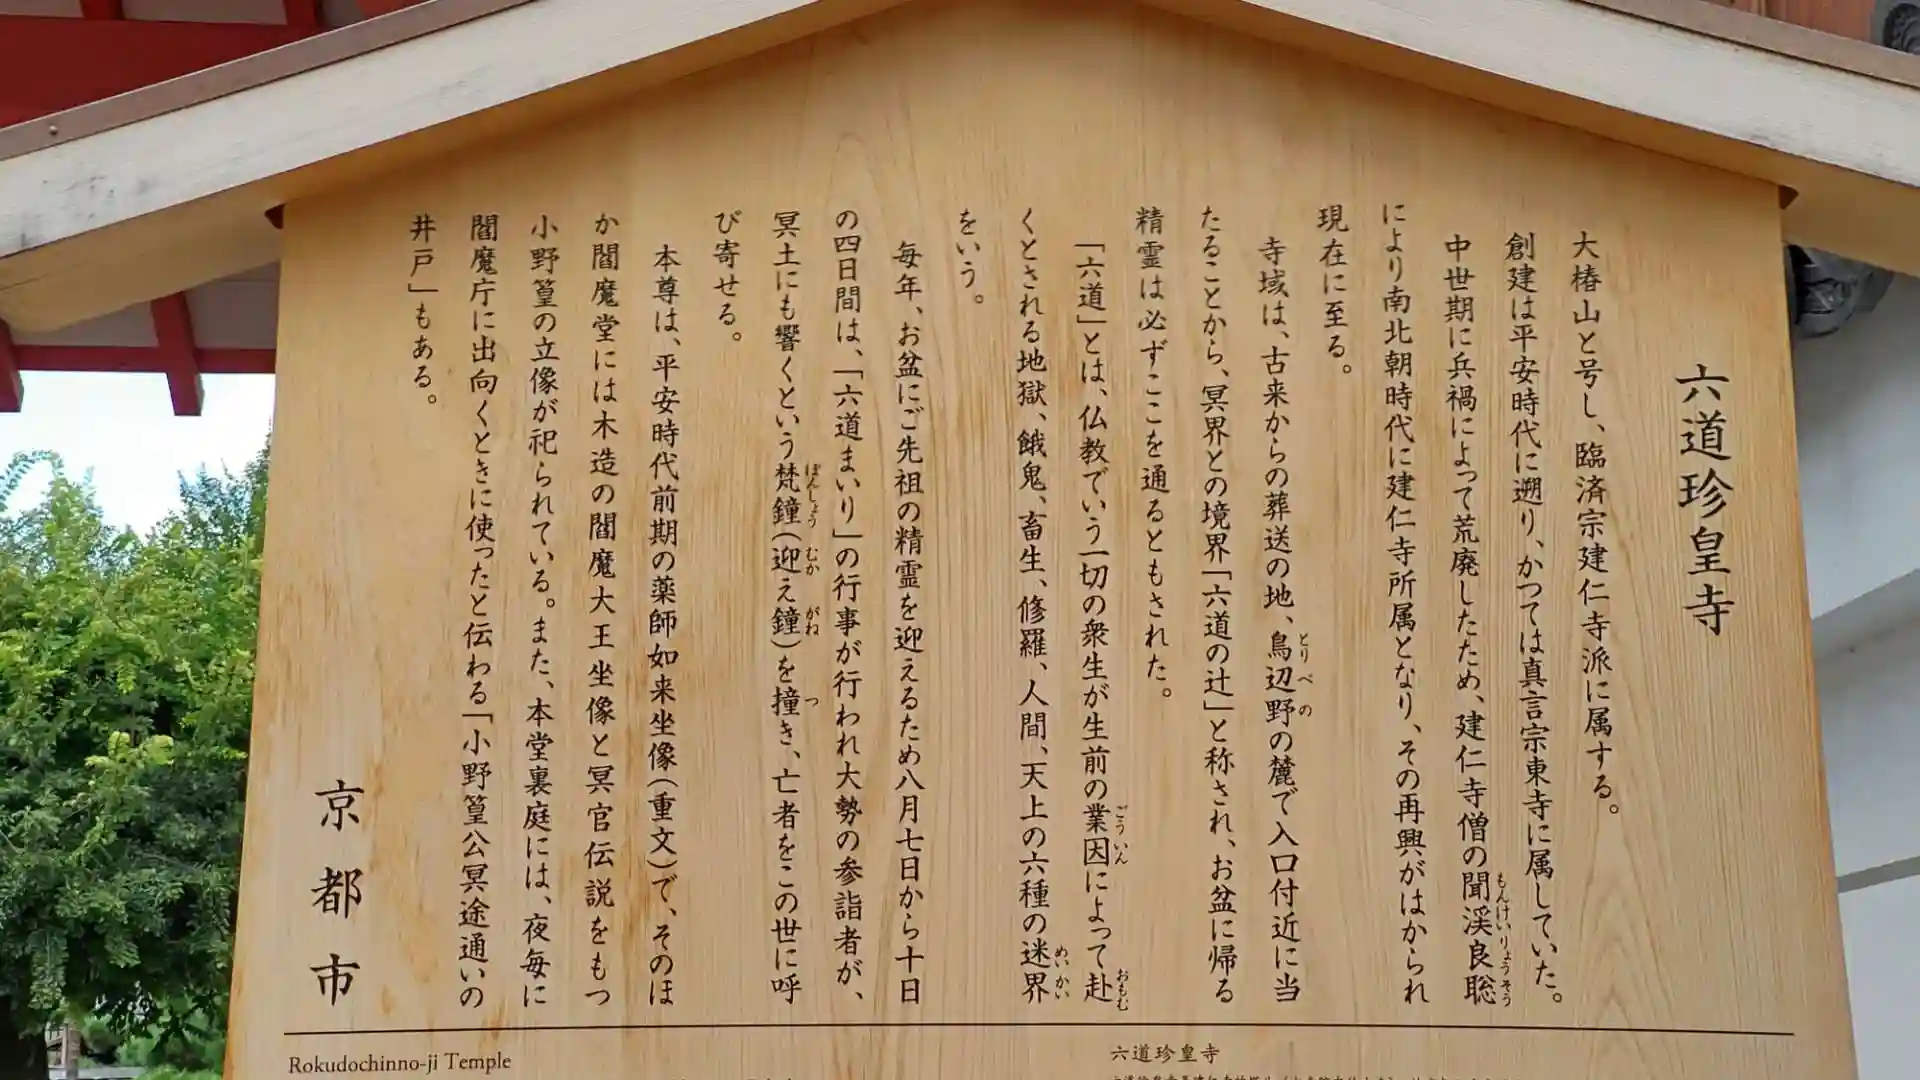 六道珍皇寺
大椿山と号し、臨済宗建仁寺派に属する。
創建は平安時代に遡り、かつては真言宗東寺に属していた。
中世期に兵禍によって荒廃したため、建仁寺僧の聞渓良聡
もんけいりょうそう
により南北朝時代に建仁寺所属となり、その再興がはかられ
現在に至る。
寺域は、古来からの葬送の地、鳥辺野の麓で入口付近に当
とりべの
たることから、冥界との境界「六道の辻」と称され、お盆に帰る
精霊は必ずここを通るともされた。
「六道」とは、仏教でいう一切の衆生が生前の業因によって赴
ごういん
おもむ
くとされる地獄、餓鬼、畜生、修羅、人間、天上の六種の迷界
めいかい
をいう。
毎年、お盆にご先祖の精霊を迎えるため八月七日から十日
の四日間は、「六道まいり」の行事が行われ大勢の参詣者が、
冥土にも響くという梵鐘(迎え鐘)を撞き、亡者をこの世に呼
ぼんしょう
むか
がね
つ
び寄せる。
本尊は、平安時代前期の薬師如来坐像(重文)で、そのほ
か閻魔堂には木造の閻魔大王坐像と冥官伝説をもつ
小野篁の立像が祀られている。また、本堂裏庭には、夜毎に
閻魔庁に出向くときに使ったと伝わる「小野篁公冥途通いの
井戸」もある。
京都市
Rokudochinno-ji Temple
六道珍皇寺